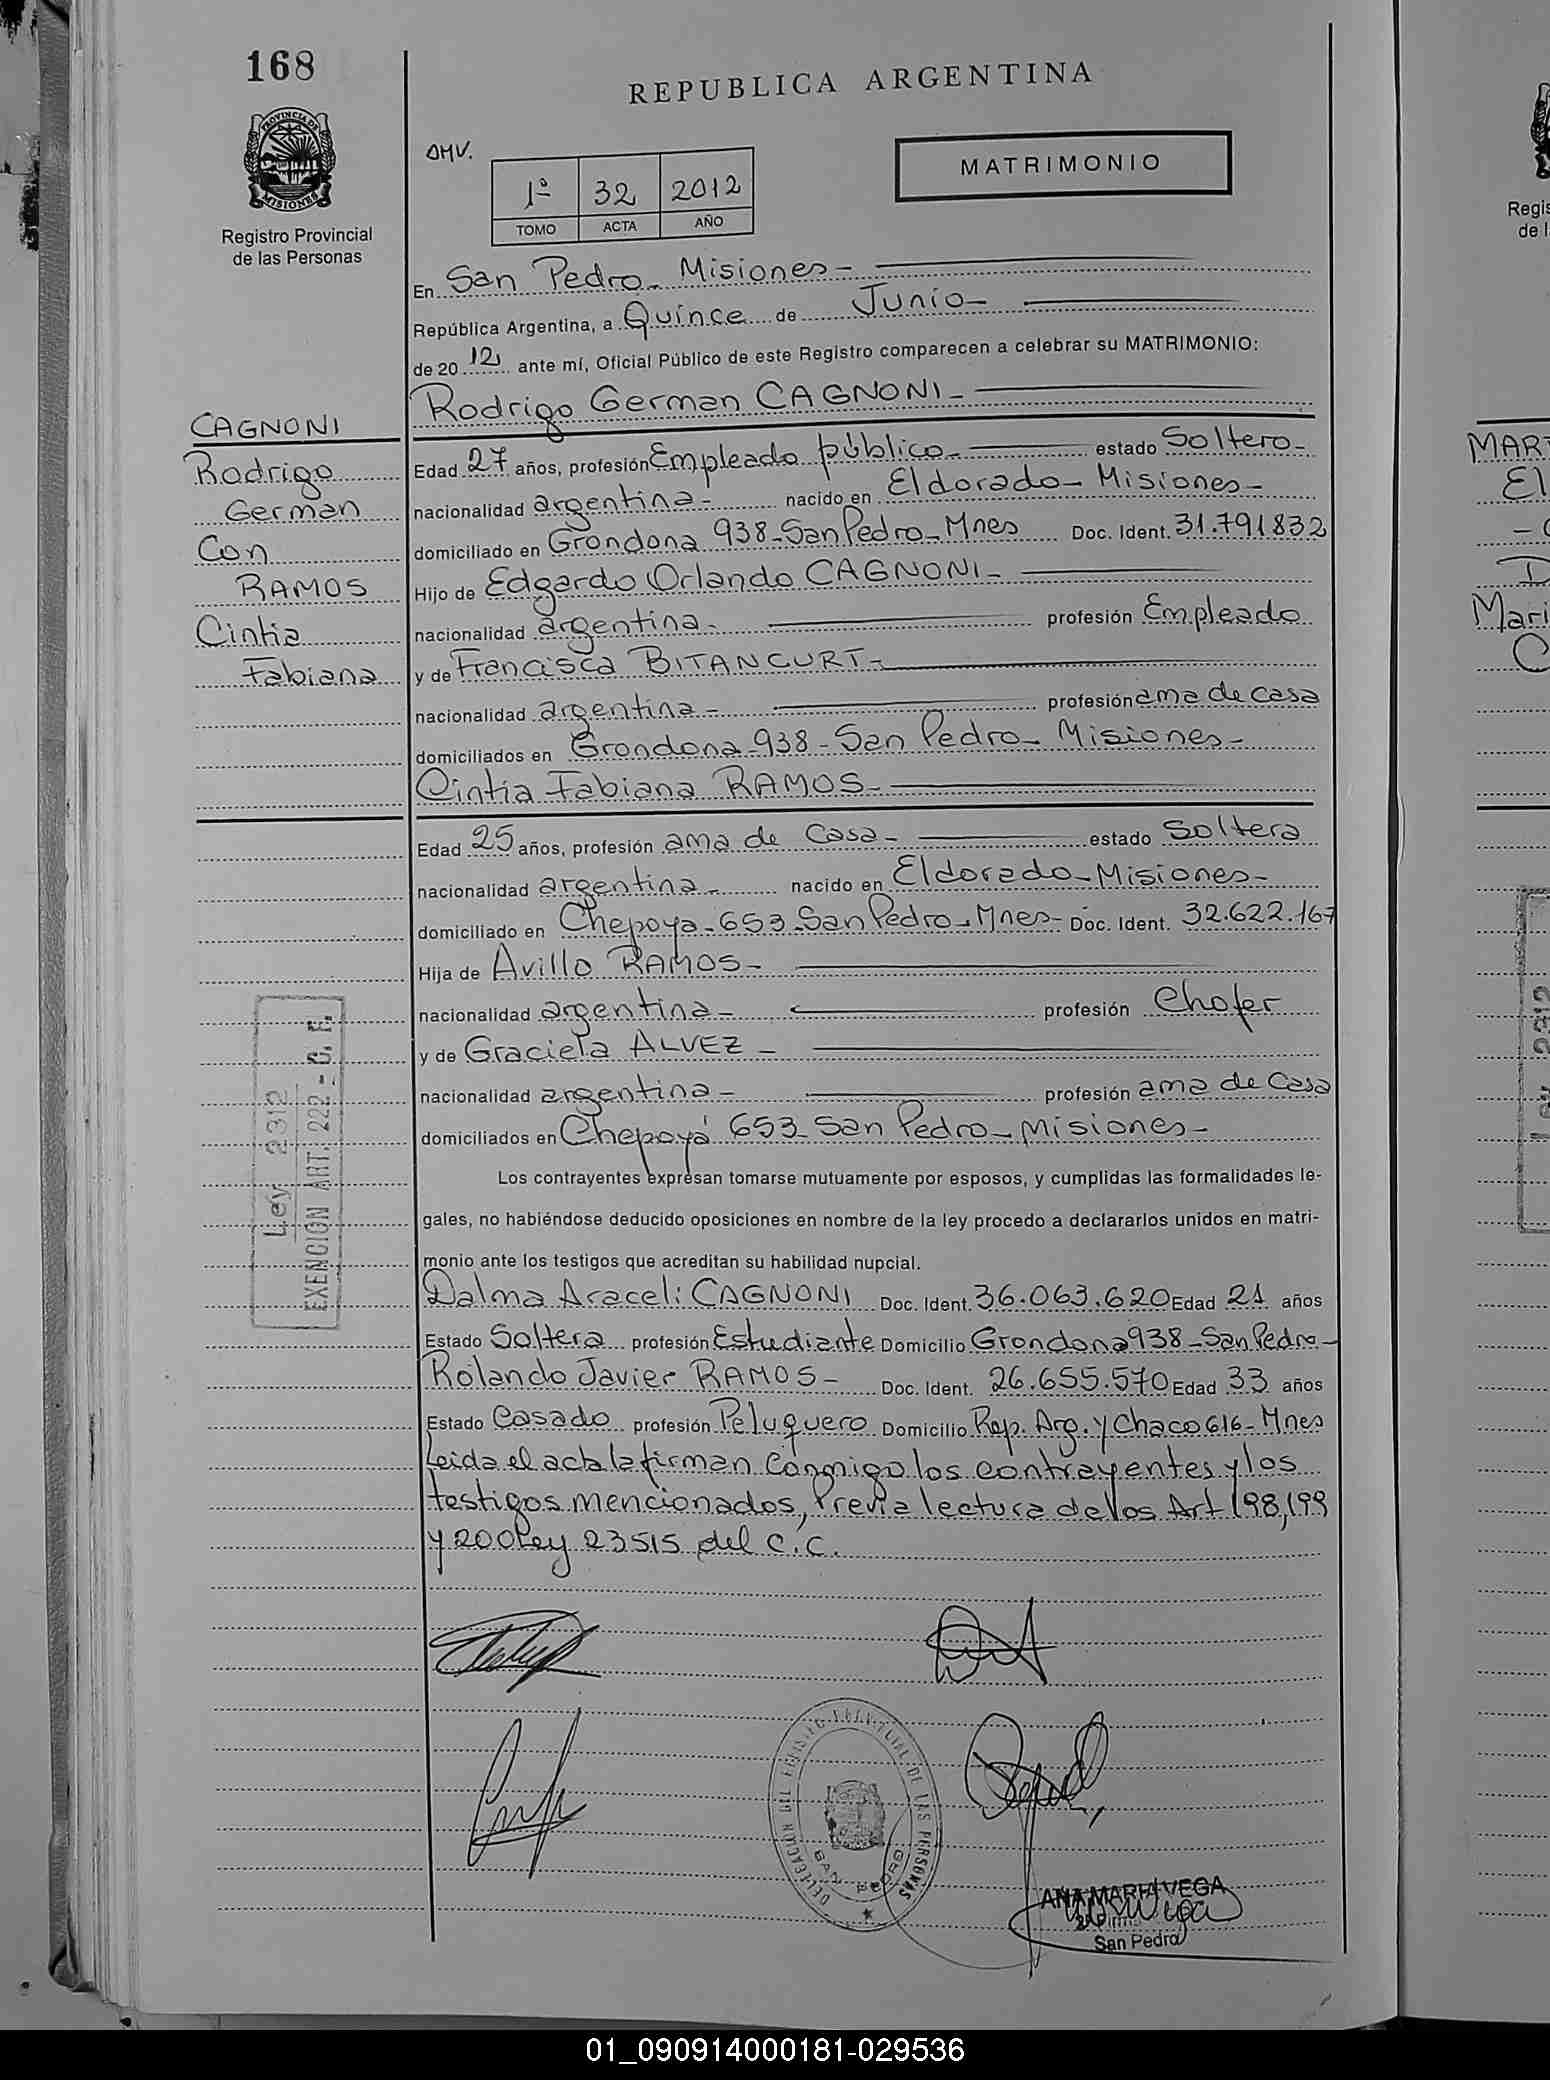 168
REPUBLICA ARGENTINA
PROVINCIA DE MISIONES
Registro Provincial
de las Personas
DMV.
1º 32 2012
TOMO ACTA AÑO
MATRIMONIO
En San Pedro - Misiones -
República Argentina, a Quince de Junio -
de 20 12 ante mí, Oficial Público de este Registro comparecen a celebrar su MATRIMONIO:
Rodrigo German CAGNONI -
CAGNONI
Rodrigo
German
Con
RAMOS
Cintia
Fabiana
Edad 27 años, profesión Empleado público - estado Soltero -
nacionalidad argentina - nacido en Eldorado - Misiones -
domiciliado en Grondona 938 - San Pedro - Mnes Doc. Ident. 31.791832
Hijo de Edgardo Orlando CAGNONI -
nacionalidad argentina - profesión Empleado
y de Francisca BITANCURT -
nacionalidad argentina - profesión ama de casa
domiciliados en Grondona - 938 - San Pedro - Misiones -
Cintia Fabiana RAMOS -
Edad 25 años, profesión ama de casa - estado Soltera
nacionalidad argentina - nacido en Eldorado - Misiones -
domiciliado en Chepoya - 653 - San Pedro - Mnes - Doc. Ident. 32.622.167
Hija de Avillo RAMOS -
nacionalidad argentina - profesión Chofer
y de Graciela ALVEZ -
nacionalidad argentina - profesión ama de casa
domiciliados en Chepoyá 653 - San Pedro - Misiones -
Los contrayentes expresan tomarse mutuamente por esposos, y cumplidas las formalidades le-
gales, no habiéndose deducido oposiciones en nombre de la ley procedo a declararlos unidos en matri-
monio ante los testigos que acreditan su habilidad nupcial.
Dalma Araceli CAGNONI Doc. Ident. 36.063.620 Edad 21 años
Estado Soltera profesión Estudiante Domicilio Grondona 938 - San Pedro -
Rolando Javier RAMOS - Doc. Ident. 26.655.570 Edad 33 años
Estado Casado profesión Peluquero Domicilio Rep. Arg. y Chaco 616 - Mnes
Leida el acta la firman conmigo los contrayentes y los
testigos mencionados, Previa lectura de los Art 198,199
y 200 Ley 23515 del C.C.
Ley 2312
EXENCION ART. 222 - C. F.
DELEGACION DEL REGISTRO PROVINCIAL DE LAS PERSONAS
SAN PEDRO
ANA MARIA VEGA
San Pedro
Regis
de l
MART
El
Mari
01_090914000181-029536